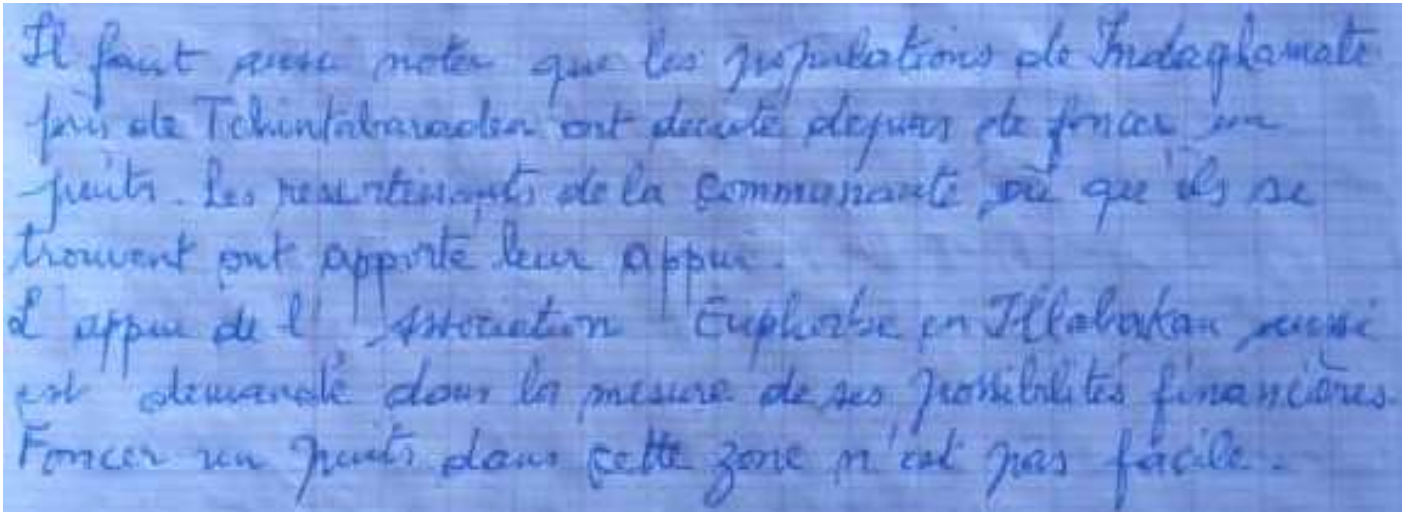 Il faut aussi noter que les populations de Indaghamate
près de Tchintabaraden ont décidé depuis de foncer un
puits. Les ressortissants de la communauté où que ils se
trouvent ont apporté leur appui.
L'appui de l'Association Euphorbe en Illabakan aussi
est demandé dans la mesure de ses possibilités financières.
Foncer un puits dans cette zone n'est pas facile.